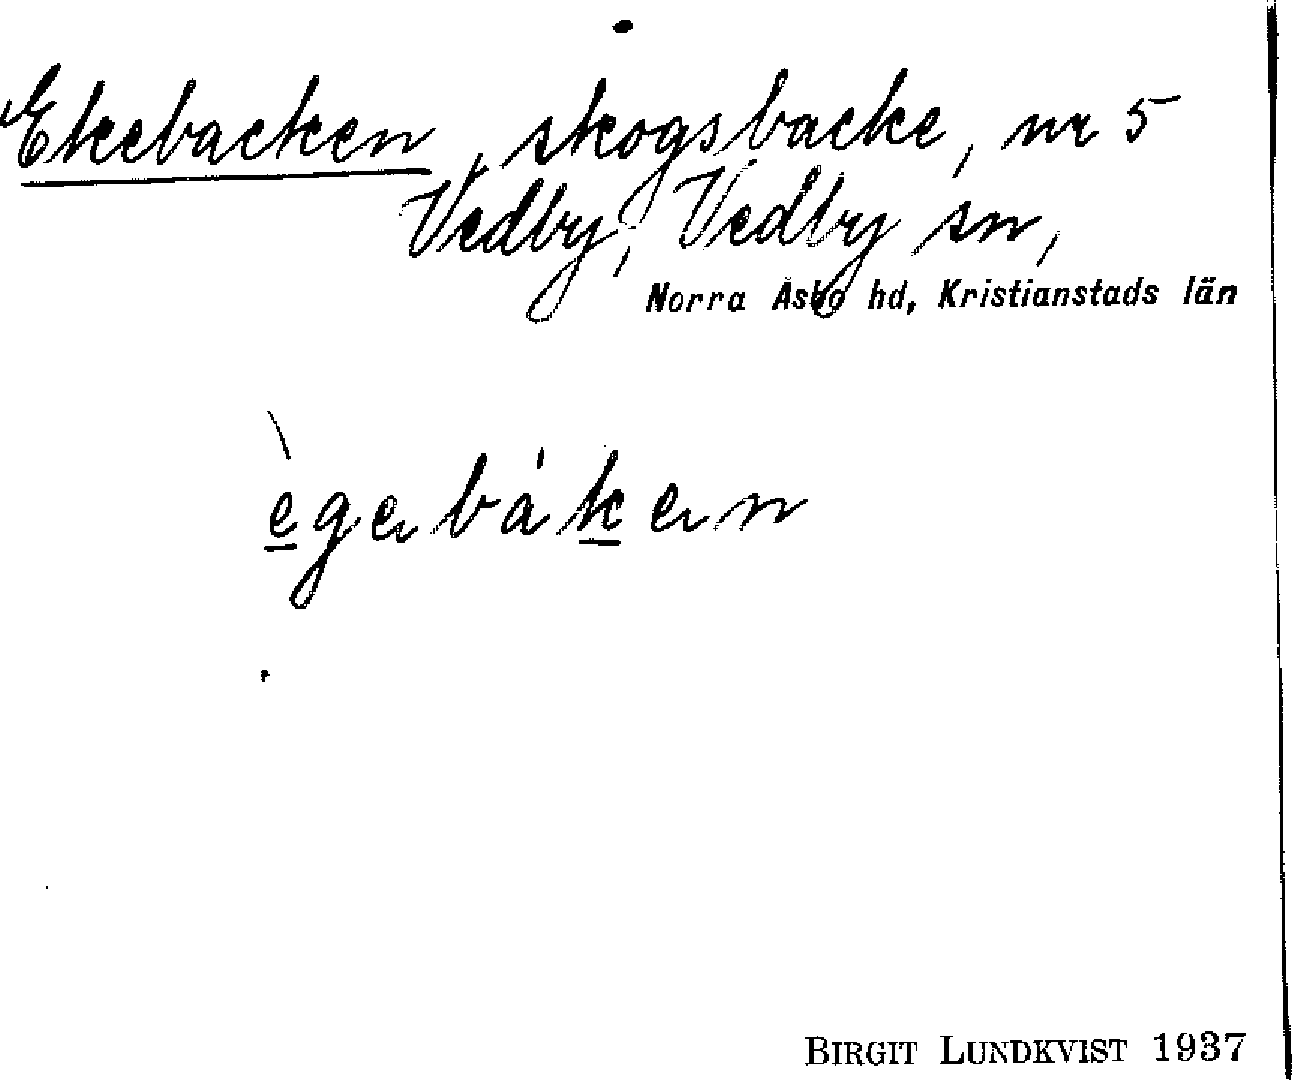 Ekebacken, skogsbacke, nr 5
Vedby, Vedby sn,
Norra Åsbo hd, Kristianstads län
ègebáken
BIRGIT LUNDKVIST 1937